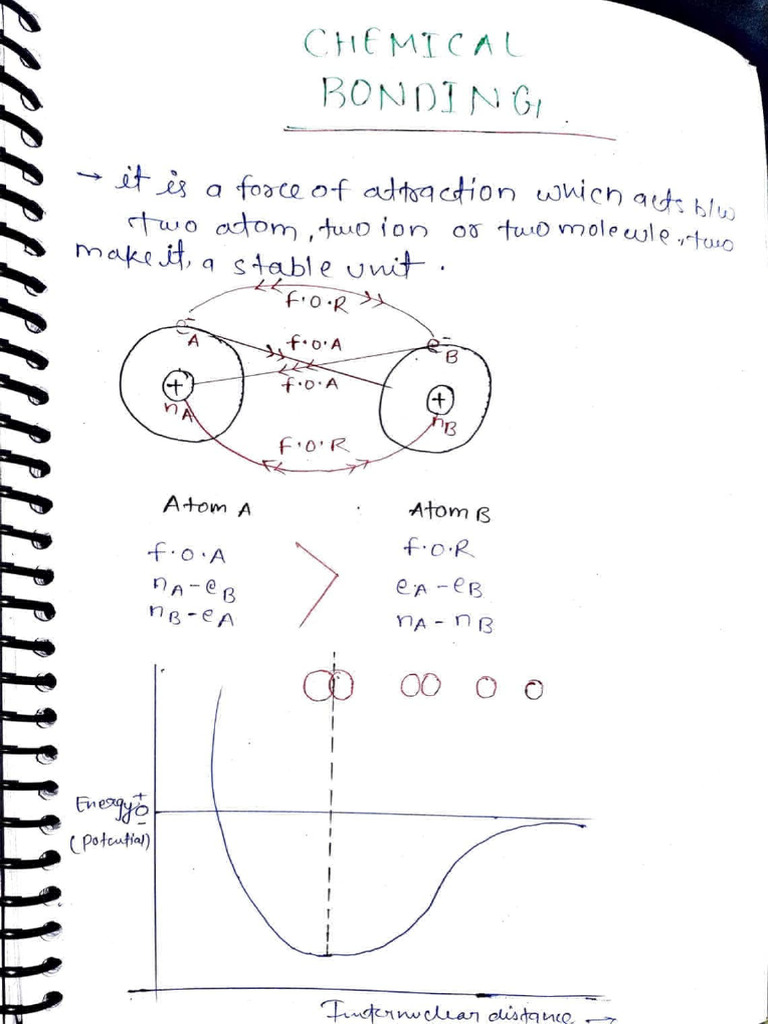 CHEMICAL
BONDING
→ it is a force of attraction which acts b/w
two atom, two ion or two molecule, two
make it, a stable unit.
f.O.R
e⁻A
f.O.A
e⁻B
f.O.A
+
nA
+
nB
F.O.R
Atom A
Atom B
f.O.A
f.O.R
nA-eB
eA-eB
nB-eA
nA-nB
Energy +0-
(potential)
Internuclear distance →